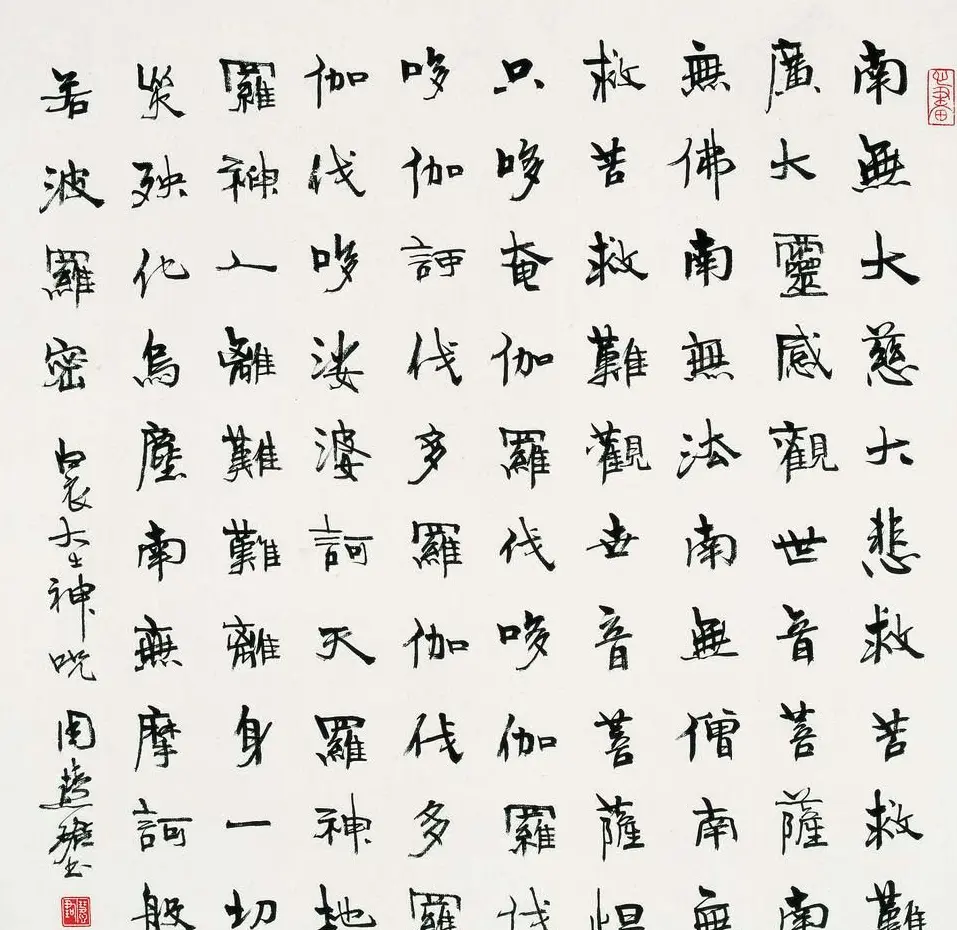 南無大慈大悲救苦救難
廣大靈感觀世音菩薩南
無佛南無法南無僧南無
救苦救難觀世音菩薩怛
只哆奄伽羅伐哆伽羅伐
哆伽訶伐多羅伽伐多羅
伽伐哆娑婆訶天羅神地
羅神人離難難離身一切
災殃化烏塵南無摩訶般
若波羅密 白衣大士神呪 周慧珺書